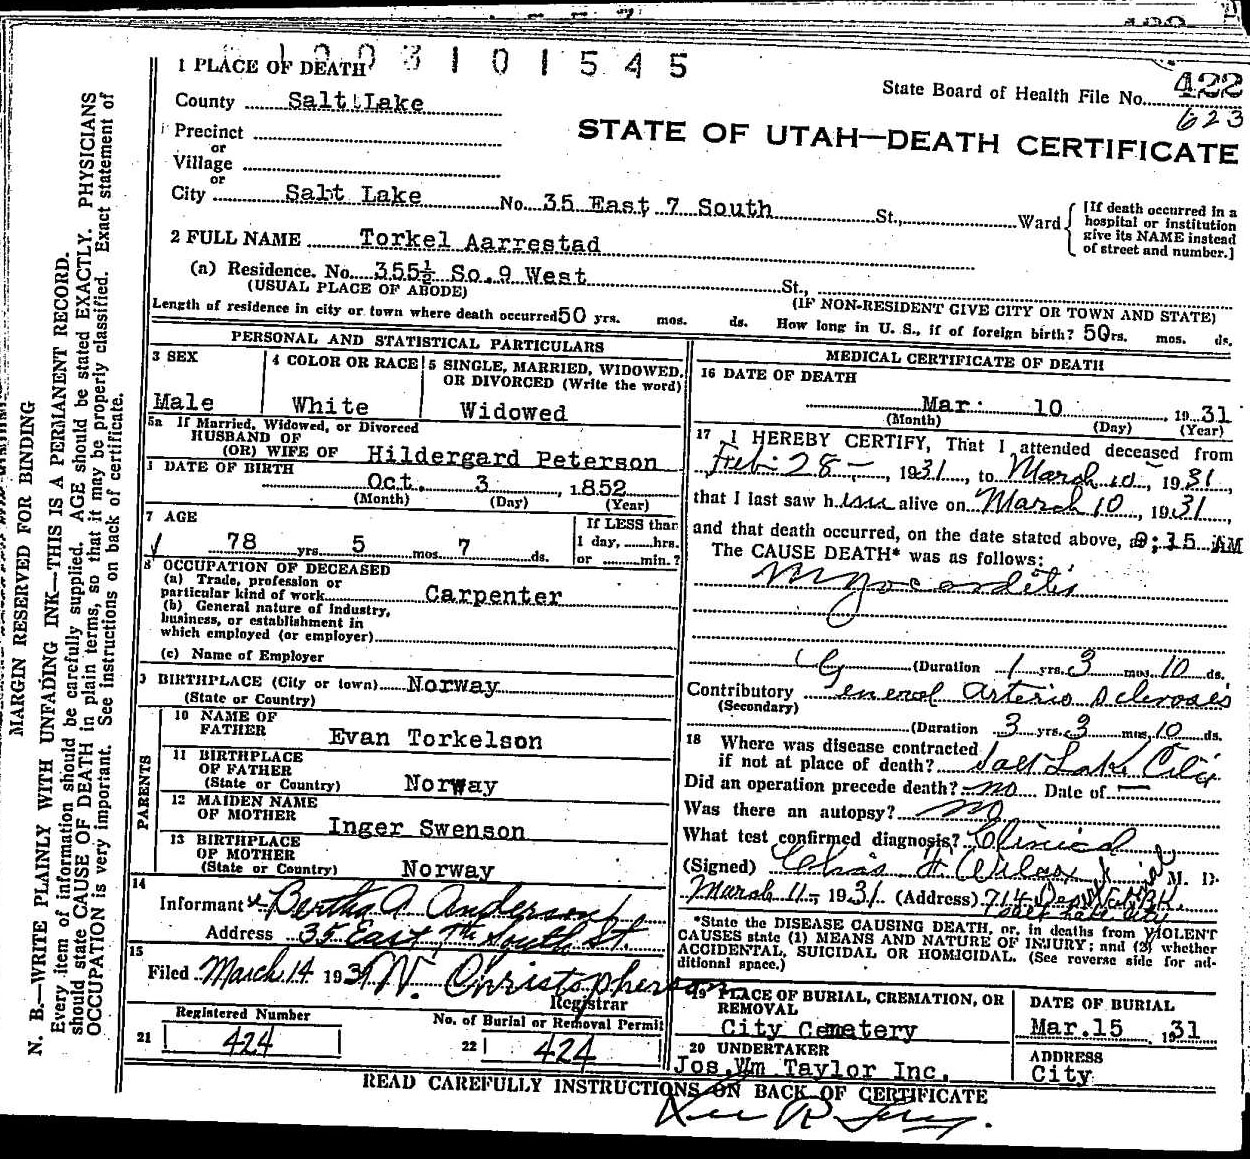 3 1 0 1 5 4 5
1 PLACE OF DEATH
State Board of Health File No. 422
623
County Salt Lake
STATE OF UTAH—DEATH CERTIFICATE
Precinct
or
Village
or
City Salt Lake No. 35 East 7 South St., Ward
[If death occurred in a
hospital or institution
give its NAME instead
of street and number.]
2 FULL NAME Torkel Aarrestad
(a) Residence. No. 355½ So. 9 West St.,
(USUAL PLACE OF ABODE) (IF NON-RESIDENT GIVE CITY OR TOWN AND STATE)
Length of residence in city or town where death occurred 50 yrs. mos. ds. How long in U. S., if of foreign birth? 50rs. mos. ds.
PERSONAL AND STATISTICAL PARTICULARS
3 SEX
Male
4 COLOR OR RACE
White
5 SINGLE, MARRIED, WIDOWED,
OR DIVORCED (Write the word)
Widowed
5a If Married, Widowed, or Divorced
HUSBAND OF
(OR) WIFE OF Hildergard Peterson
DATE OF BIRTH
Oct. 3, 1852
(Month) (Day) (Year)
7 AGE
78 yrs. 5 mos. 7 ds.
If LESS than
1 day, hrs.
or min.?
8 OCCUPATION OF DECEASED
(a) Trade, profession or
particular kind of work Carpenter
(b) General nature of industry,
business, or establishment in
which employed (or employer)
(c) Name of Employer
9 BIRTHPLACE (City or town) Norway
(State or Country)
PARENTS
10 NAME OF
FATHER Evan Torkelson
11 BIRTHPLACE
OF FATHER
(State or Country) Norway
12 MAIDEN NAME
OF MOTHER Inger Swenson
13 BIRTHPLACE
OF MOTHER
(State or Country) Norway
14
Informant Bertha A Anderson
Address 35 East 7th South St.
15
Filed March 14 1931 W. Christopherson
Registrar
Registered Number
21 424
No. of Burial or Removal Permit
22 424
MEDICAL CERTIFICATE OF DEATH
16 DATE OF DEATH
Mar. 10, 1931
(Month) (Day) (Year)
17 I HEREBY CERTIFY, That I attended deceased from
Feb. 28 —, 1931, to March 10, 1931,
that I last saw him alive on March 10, 1931,
and that death occurred, on the date stated above, 9:15 AM
The CAUSE DEATH* was as follows:
Myocarditis
(Duration 1 yrs. 3 mos. 10 ds.
Contributory General Arterio Sclerosis
(Secondary)
(Duration 3 yrs. 3 mos. 10 ds.
18 Where was disease contracted
if not at place of death? Salt Lake City
Did an operation precede death? no Date of —
Was there an autopsy? no
What test confirmed diagnosis? Clinical
(Signed) Chas F. Wilcox M. D.
March 11 - 1931 (Address) 714 Deseret Bk.
Salt Lake City
*State the DISEASE CAUSING DEATH, or, in deaths from VIOLENT
CAUSES state (1) MEANS AND NATURE OF INJURY; and (2) whether
ACCIDENTAL, SUICIDAL OR HOMICIDAL. (See reverse side for ad-
ditional space.)
19 PLACE OF BURIAL, CREMATION, OR
REMOVAL
City Cemetery
DATE OF BURIAL
Mar. 15, 1931
20 UNDERTAKER
Jos. Wm Taylor Inc.
ADDRESS
City
READ CAREFULLY INSTRUCTIONS ON BACK OF CERTIFICATE
MARGIN RESERVED FOR BINDING
N. B.—WRITE PLAINLY WITH UNFADING INK—THIS IS A PERMANENT RECORD.
Every item of information should be carefully supplied. AGE should be stated EXACTLY. PHYSICIANS
should state CAUSE OF DEATH in plain terms, so that it may be properly classified. Exact statement of
OCCUPATION is very important. See instructions on back of certificate.